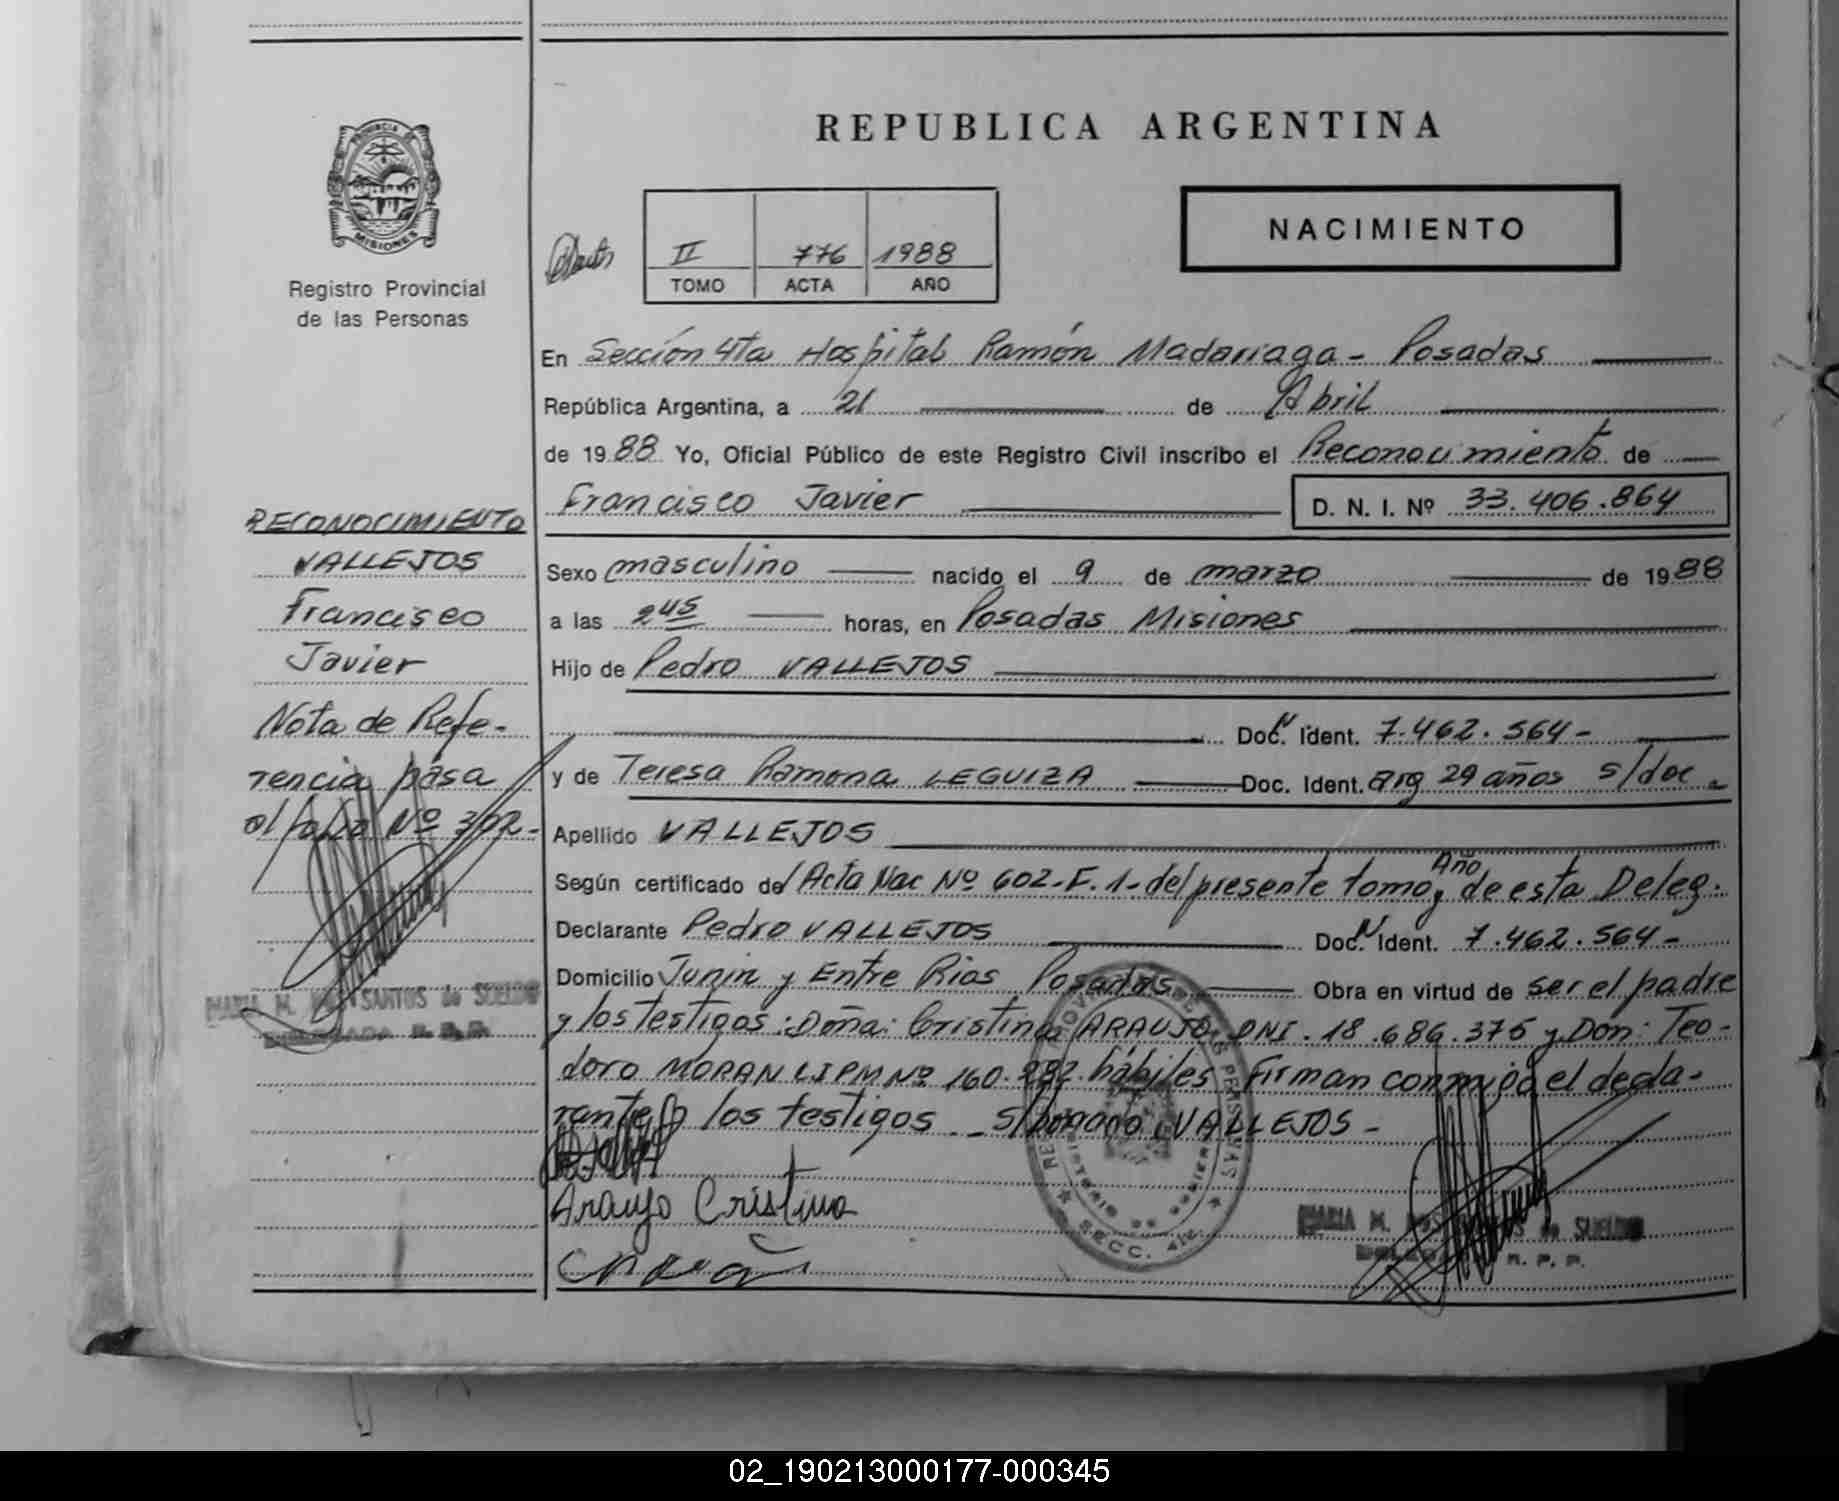 REPUBLICA ARGENTINA
PROVINCIA DE
MISIONES
Registro Provincial
de las Personas
II 776 1988
TOMO ACTA AÑO
NACIMIENTO
En Sección 4ta Hospital Ramón Madariaga - Posadas
República Argentina, a 21 de Abril
de 1988 Yo, Oficial Público de este Registro Civil inscribo el Reconocimiento de
Francisco Javier D. N. I. Nº 33.406.864
Sexo masculino nacido el 9 de marzo de 1988
a las 2 45 horas, en Posadas Misiones
Hijo de Pedro VALLEJOS
Doc. Ident. 7.462.564-
y de Teresa Ramona LEGUIZA Doc. Ident. arg 29 años s/doc
Apellido VALLEJOS
Según certificado de/ Acta Nac Nº 602-F.1- del presente tomo y Año de esta Deleg.
Declarante Pedro VALLEJOS Doc. Ident. 7.462.564-
Domicilio Junin y Entre Rios Posadas Obra en virtud de ser el padre
y los testigos: Doña: Cristina ARAUJO DNI. 18.686.375 y Don: Teo-
doro MORAN CIPM Nº 160. hábiles Firman conmigo el decla-
rante y los testigos - VALLEJOS -
Araujo Cristina
MARIA M. DOS SANTOS de SUELDO
R. P. P.
SECC. 4ta.
RECONOCIMIENTO
VALLEJOS
Francisco
Javier
Nota de Refe-
rencia pasa
al folio Nº
MARIA M. DOS SANTOS de SUELDO
DELEGADA R. P. P.
02_190213000177-000345